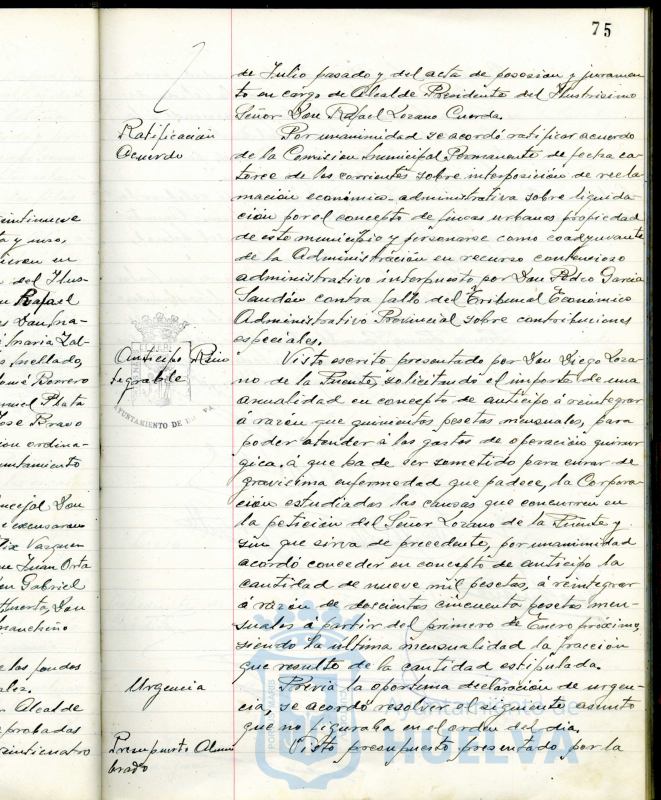 75
de Julio pasado y del acta de posesion y juramen-
to en cargo de Alcalde Presidente del Ilustrisimo
Señor Don Rafael Lozano Cuerda.
Ratificación
Acuerdo
Por unanimidad se acordó ratificar acuerdo
de la Comision Municipal Permanente de fecha ca-
torce de los corrientes sobre interposición de recla-
mación económico-administrativa sobre liquida-
ción por el concepto de fincas urbanas propiedad
de este municipio y personarse como coadyuvante
de la Administración en recurso contencioso
administrativo interpuesto por Don Pedro Garcia
contra fallo del Tribunal Económico
Administrativo Provincial sobre contribuciones
especiales.
Anticipo Rein
tegrable
AYUNTAMIENTO DE
Visto escrito presentado por Don Diego Loza-
no de la Puente, solicitando el importe de una
anualidad en concepto de anticipo á reintegrar
á razón que quinientas pesetas mensuales, para
poder atender á los gastos de operación quirur
gica, á que ha de ser sometido para curar de
gravisima enfermedad que padece, la Corpora-
ción estudiadas las causas que concurren en
la petición del Señor Lozano de la Puente y
sin que sirva de precedente, por unanimidad
acordó conceder en concepto de anticipo la
cantidad de nueve mil pesetas, á reintegrar
á razón de doscientas cincuenta pesetas men-
suales á partir del primero de Enero próximo,
siendo la última mensualidad la fraccion
que resulte de la cantidad estipulada.
Urgencia
Previa la oportuna declaración de urgen-
cia, se acordó resolver el siguiente asunto
que no figuraba en el orden del dia.
Presupuesto Alum
brado
Visto presupuesto presentado por la
Ayuntamiento de
HUELVA
veintinueve
ta y uno.
nieron en
del Ilus-
Rafael
Maria
Mellado,
Borrero
Plata
José Bravo
ion ordina-
untamiento
ncejal Don
e excusaron
Vazquez
n Juan Orta
on Gabriel
Huerta, Don
Mancheño
e los fondos
Alcalde
probadas
veinticuatro